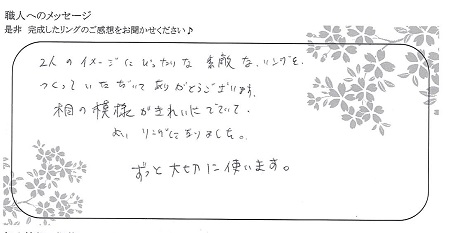 職人へのメッセージ
是非 完成したリングのご感想をお聞かせください♪
2人のイメージにぴったりな 素敵な、リングを
つくっていただいて ありがとうございます。
相の模様がきれいにでていて、
よい リングになりました。
ずっと大切に使います。